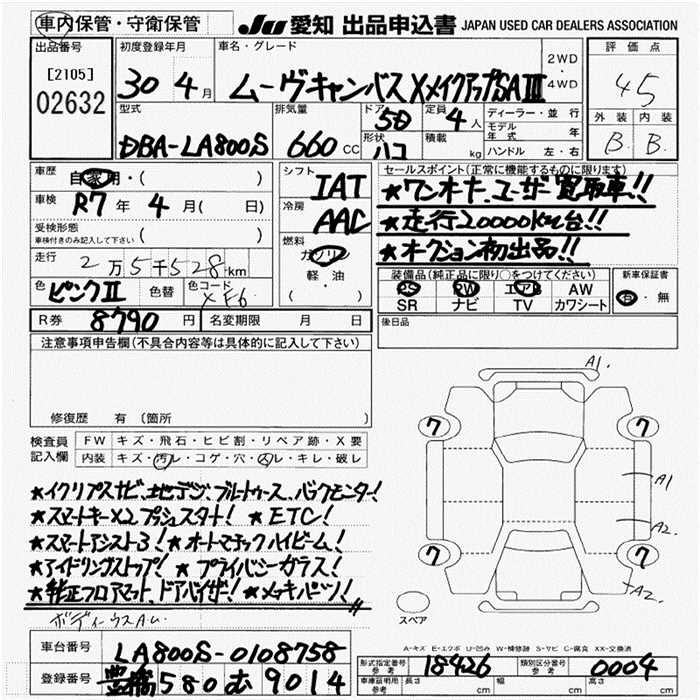 車内保管・守衛保管 JU 愛知 出品申込書 JAPAN USED CAR DEALERS ASSOCIATION
出品番号 [2105] 02632
初度登録年月 30年 4月
車名・グレード ムーヴキャンバスXメイクアップSAⅢ
2WD・4WD
評価点 45
型式 DBA-LA800S
排気量 660cc
ドア 5D 形状 ハコ
定員 4人 積載 kg
ディーラー・並行
モデル年式 年
ハンドル 左・右
外装 B 内装 B
車歴 自家用・( )
車検 R7年 4月( 日)
受検形態 車検付きのみ記入して下さい ( )
走行 2万5千528km
色 ピンクⅡ 色替 色コード XF6
R券 8790円 名変期限 月 日
シフト IAT
冷房 AAC
燃料 ガソリン 軽油 ( ・ )
セールスポイント(正常に機能するものに限ります)
★ワンオーナーユーザー買取車!!
★走行20000Km台!!
★オークション初出品!!
装備品(純正品に限り○をつけてください)
PS PW エアB AW
SR ナビ TV カワシート
新車保証書 有・無
後日品
注意事項申告欄(不具合内容等は具体的に記入して下さい)
修復歴 有(箇所
検査員記入欄 FW キズ・飛石・ヒビ割・リペア跡・X要
内装 キズ・汚レ・コゲ・穴・スレ・キレ・破レ
★イクリプスナビ、地デジ、ブルートゥース、バックモニター!
★スマートキーX2プッシュスタート! ★ETC!
★スマートアシスト3! ★オートマチックハイビーム!
★アイドリングストップ! ★プライバシーガラス!
★純正フロアマット、ドアバイザー! ★メッキパーツ!
ボディーウスA.u.
A1.
7 7
A1
A2.
7 7
A2
スペア
A-キズ E-エクボ U-凹み W-補修跡 S-サビ C-腐食 XX-交換済
車台番号 LA800S-0108758
登録番号 豊橋 580 む 9014
形式指定番号 参考 18426 類別区分番号 参考 0004
車庫証明用 参考 長さ cm 幅 cm 高さ cm